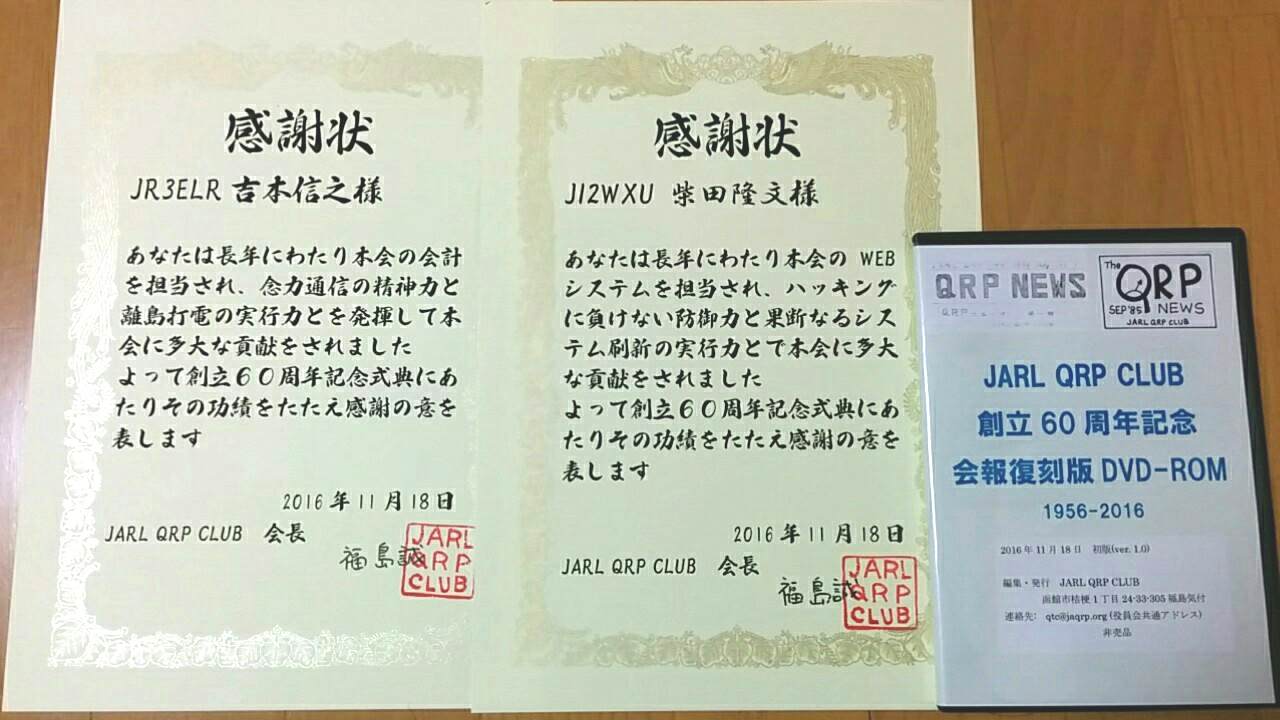 感謝状
JR3ELR 吉本信之様
あなたは長年にわたり本会の会計
を担当され、念力通信の精神力と
離島打電の実行力とを発揮して本
会に多大な貢献をされました
よって創立60周年記念式典にあ
たりその功績をたたえ感謝の意を
表します
2016年11月18日
JARL QRP CLUB 会長
福島誠
JARL
QRP
CLUB
感謝状
JI2WXU 柴田隆文様
あなたは長年にわたり本会の WEB
システムを担当され、ハッキング
に負けない防御力と果断なるシス
テム刷新の実行力とで本会に多大
な貢献をされました
よって創立60周年記念式典にあ
たりその功績をたたえ感謝の意を
表します
2016年11月18日
JARL QRP CLUB 会長
福島誠
JARL
QRP
CLUB
QRP NEWS
The
QRP
SEP '85 NEWS
JARL QRP CLUB
JARL QRP CLUB
創立 60 周年記念
会報復刻版 DVD-ROM
1956-2016
2016年11月18日 初版(ver. 1.0)
編集・発行 JARL QRP CLUB
函館市桔梗1丁目 24-33-305 福島気付
連絡先: qtc@jaqrp.org (役員会共通アドレス)
非売品